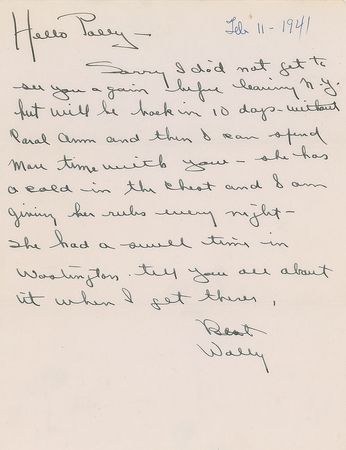 Hello Pally - Feb 11 - 1941
Sorry I did not get to
see you again before leaving N.Y.
but will be back in 10 days - without
Carol Ann and then I can spend
more time with you - she has
a cold - in the chest and I am
giving her rubs every night -
she had a swell time in
Washington. tell you all about
it when I get there,
Best
Wally